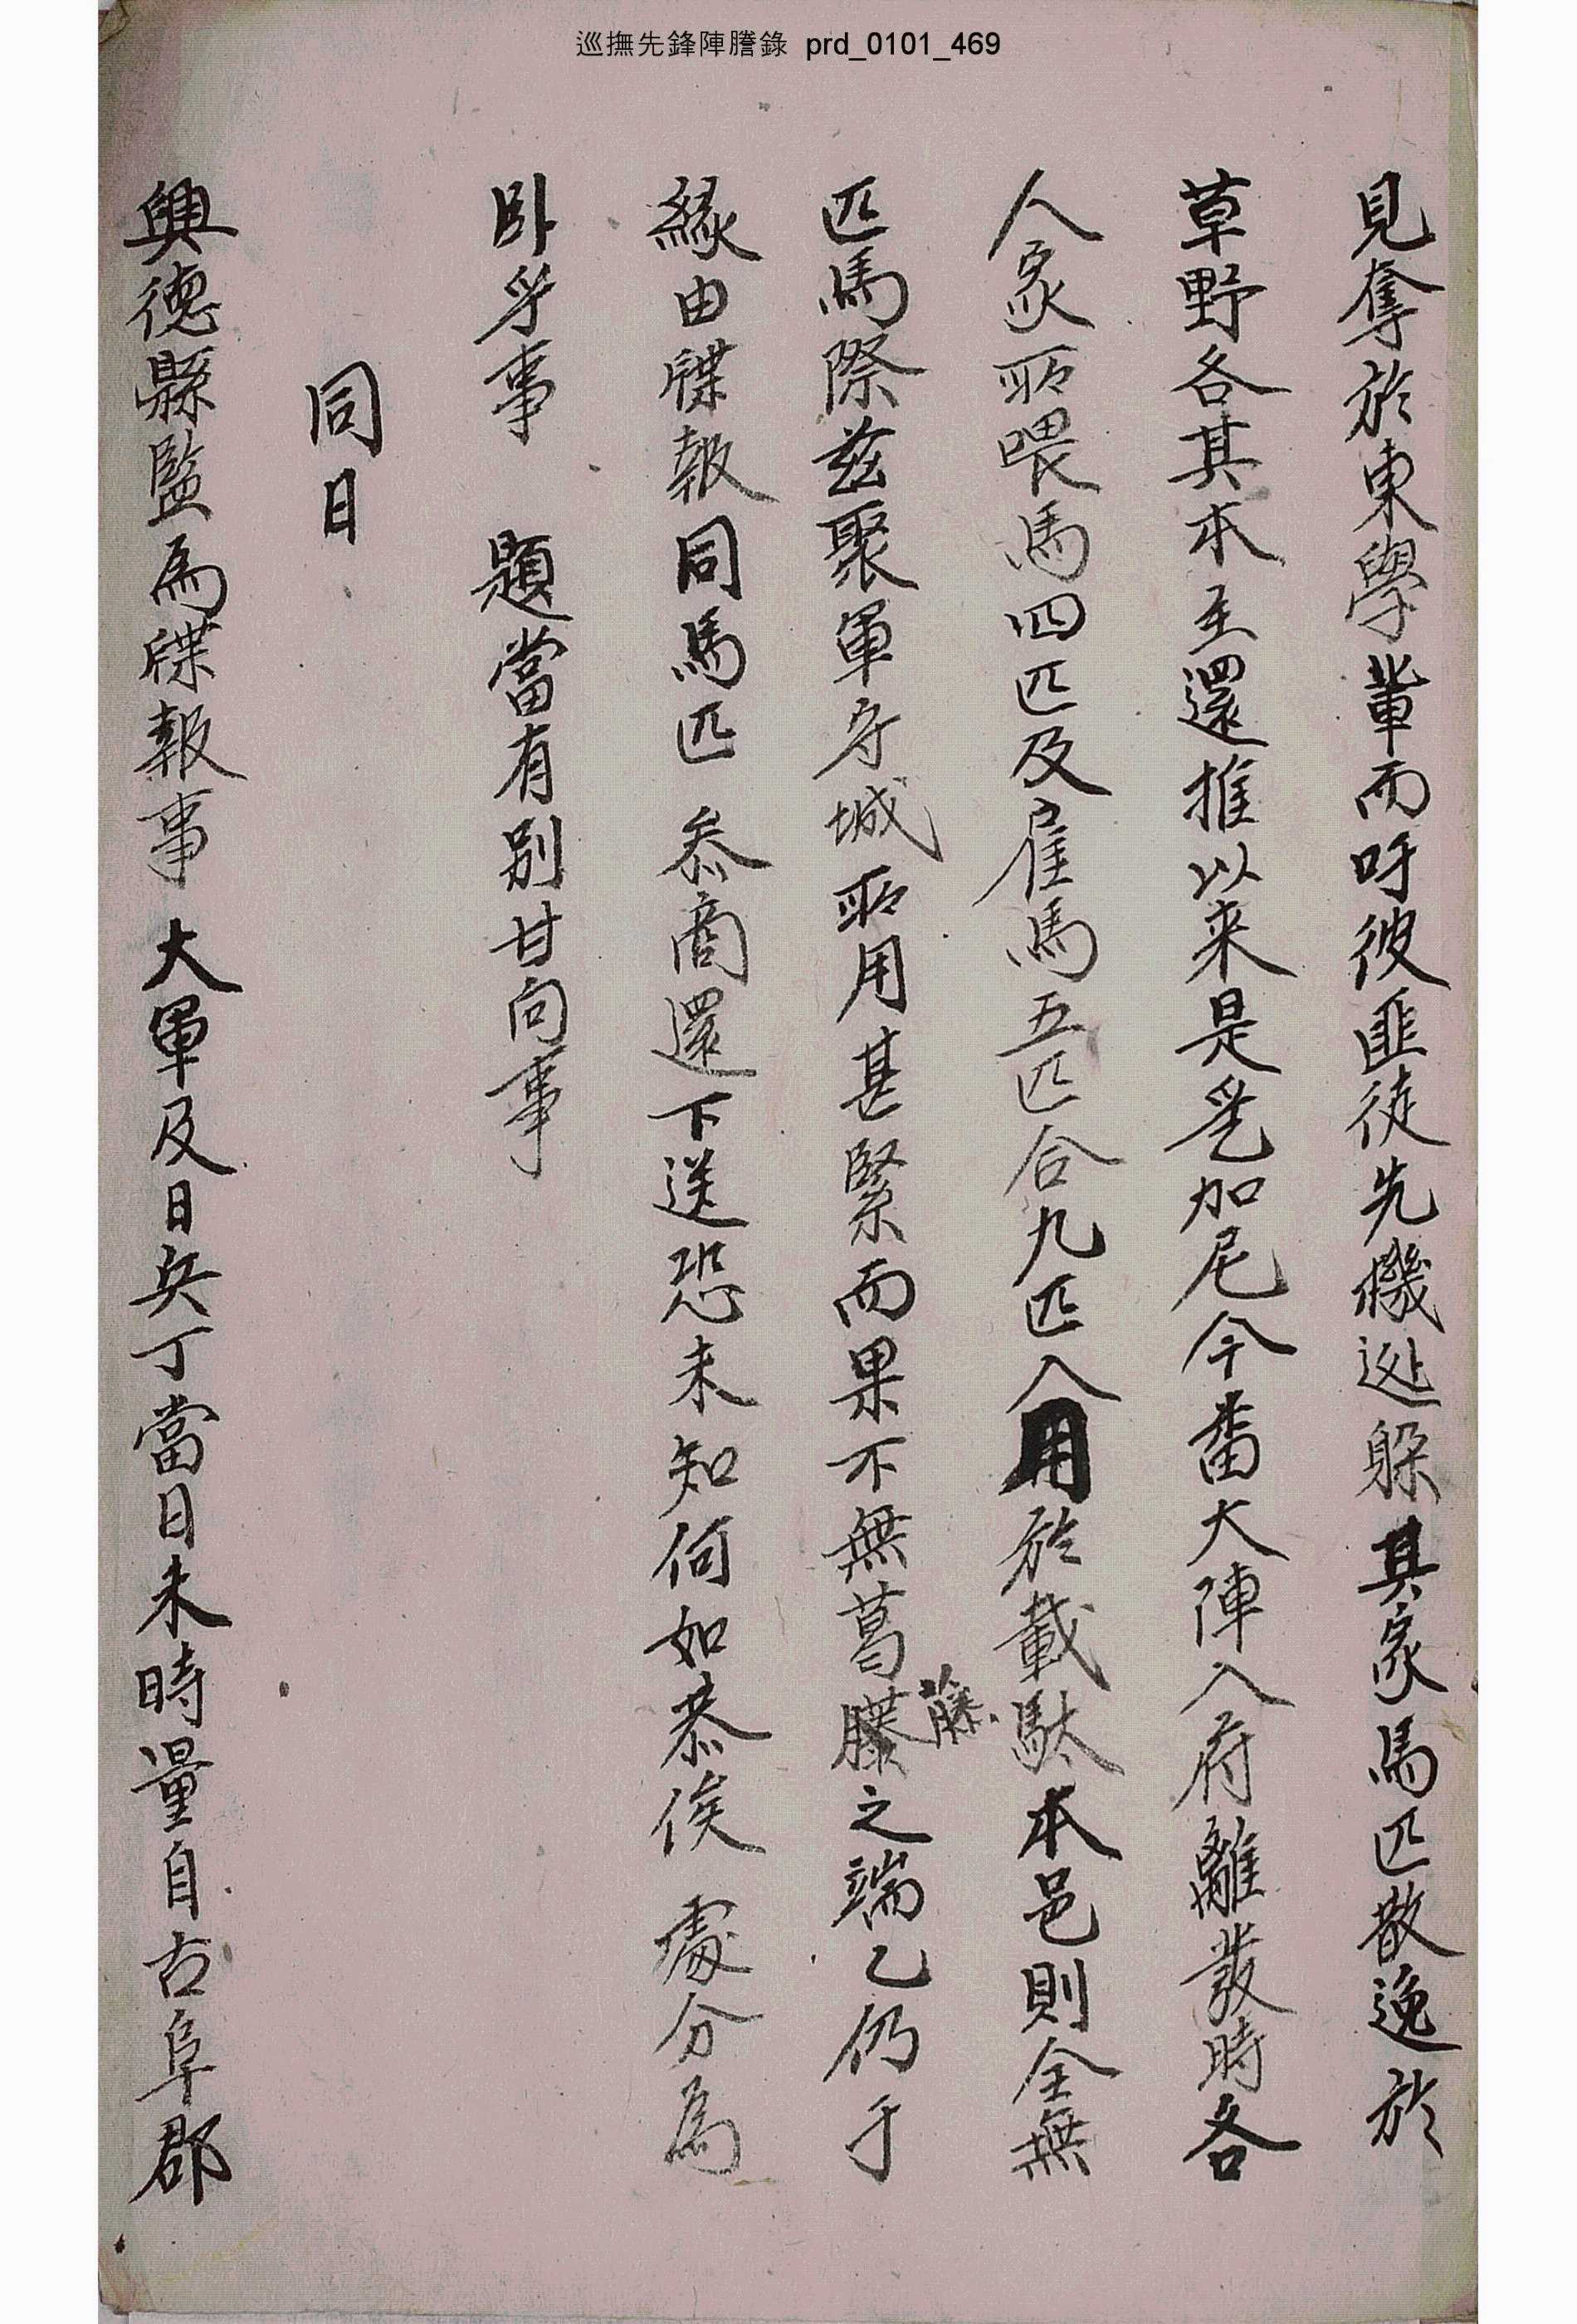 巡撫先鋒陣謄錄 prd_0101_469
見奪於東學輩而呼彼匪徒先機逃躱其家馬匹散逸於
草野各其本主還推以来是乎加尼今番大陣入府離發時各
人家所喂馬四匹及雇馬五匹合九匹入用於載駄本邑則全無
匹馬際玆聚軍守城所用甚緊而果不無葛藤之端乙仍于
藤
緣由牒報同馬匹 叅商還下送恐未知何如恭俟 處分爲
卧乎事 題當有別甘向事
同日
興德縣監爲牒報事 大軍及日兵丁當日未時量自古阜郡